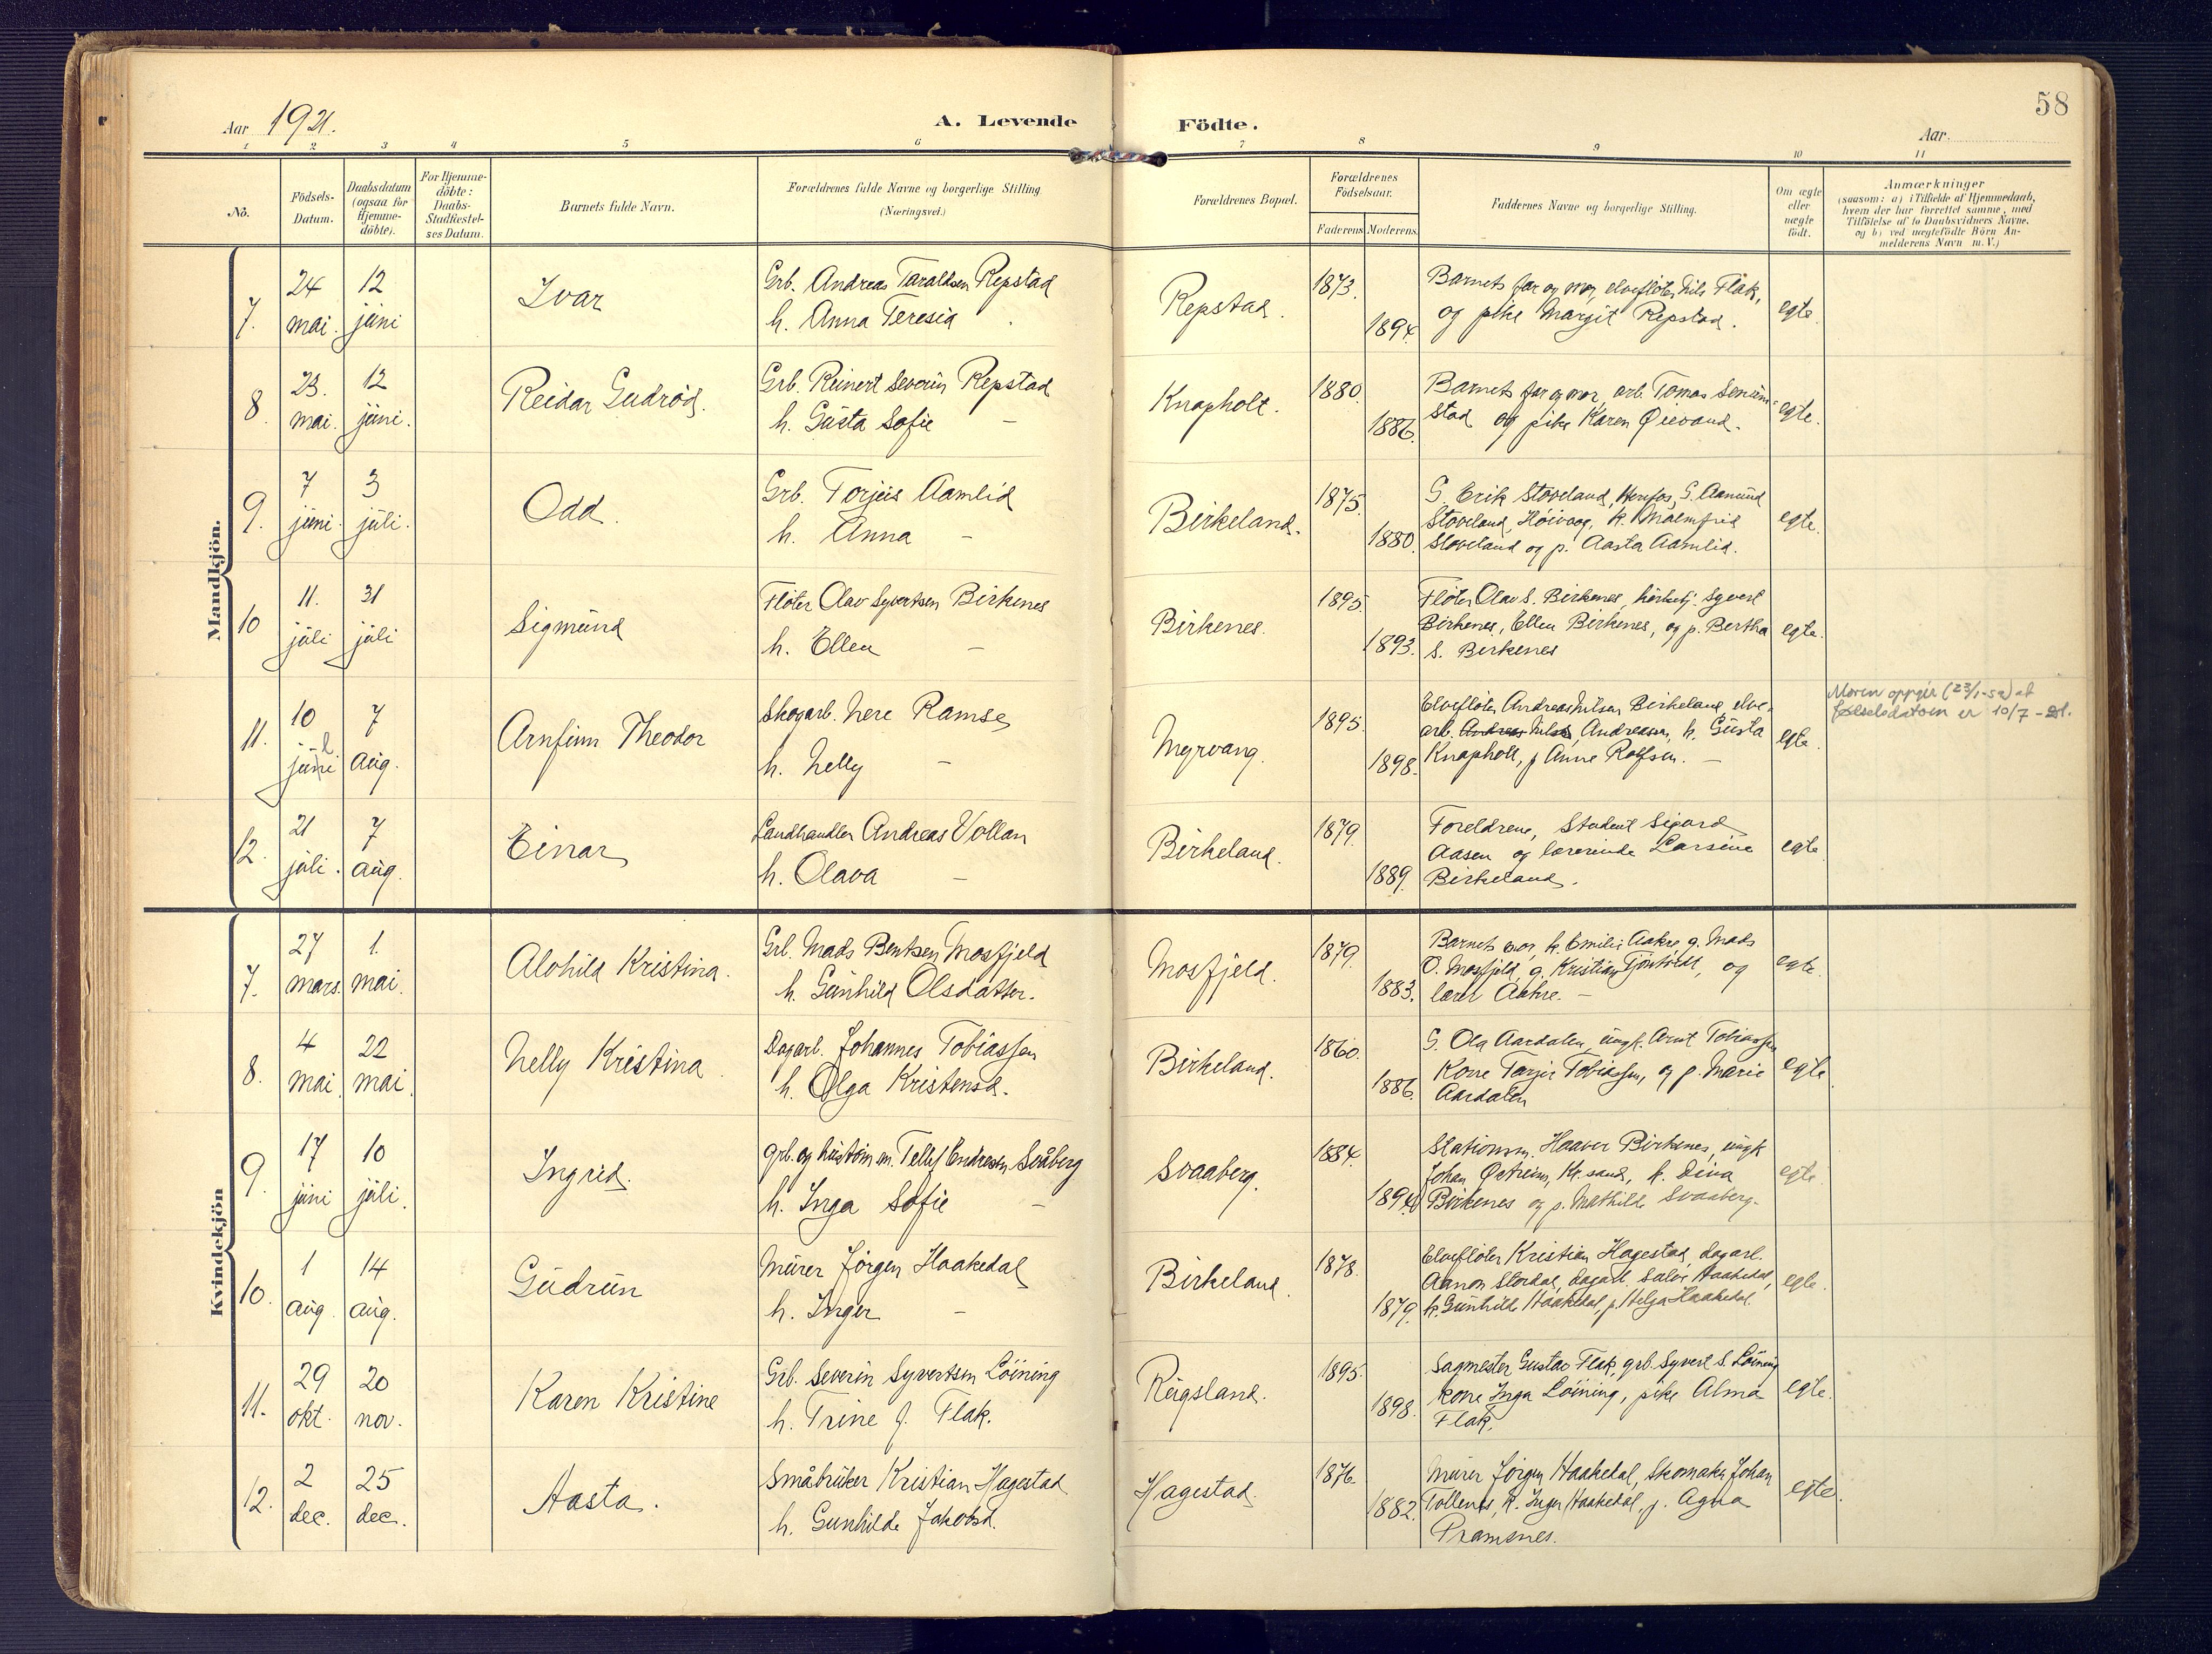 58
Aar 1921.
A. Levende Födte.
Aar
1 2 3 4 5 6 7 8 9 10 11
No.
Födsels-
Datum.
Daabsdatum
(ogsaa for
Hjemme-
döbte).
For Hjemme-
döbte:
Daabs-
Stadfæstel-
ses Datum.
Barnets fulde Navn.
Forældrenes fulde Navne og borgerlige Stilling
(Næringsvei.)
Forældrenes Bopæl.
Forældrenes
Födselsaar.
Faderens Moderens
Faddernes Navne og borgerlige Stilling.
Om ægte
eller
uægte
födt.
Anmærkninger
(saasom: a) i Tilfælde af Hjemmedaab,
hvem der har forrettet samme, med
Tilföielse af to Daabsvidners Navne.
og b) ved uægtefödte Börn An-
melderens Navn m. V.)
Mandkjön.
7. 24 mai. 12 juni
Ivar
Grb. Andreas Taraldsen Repstad
h. Anna Teresia
Repstad.
1873. 1894.
Barnets far og mor, elvefløter Nils Flak,
og pike Margit Repstad.
egte
8. 23. mai. 12 juni.
Reidar Gudrød.
Grb. Reinert Severin Repstad
h. Gusta Sofie –
Knapholt.
1880. 1886.
Barnets far og mor, arb. Tomas Senum-
stad og pike Karen Øievand.
egte.
9. 7 juni. 3 juli.
Odd.
Grb. Torjus Aamlid
h. Anna –
Birkeland.
1875. 1880.
G. Erik Støveland, Herefos, G. Aamund
Støveland, Høivaag, k. Malmfrid
Støveland og p. Aasta Aamlid.
egte.
10 11. juli 31 juli
Sigmund
Fløter Olav Syvertsen Birkenes
h. Ellen –
Birkenes.
1895. 1893.
Fløter Olav S. Birkenes, Syvert
Birkenes, Ellen Birkenes, og p. Bertha
S. Birkenes
egte.
11. 10 juni l 7 aug.
Arnfinn Theodor
Skogarb. Nere Ramse
h. Nelly –
Myrvang.
1895. 1898.
Elvefløter Andreas Nilsen Birkeland, elve-
arb. Andreas Nilsen, Andreassen, h. Gusta
Knapholt, p Anne Rolfsen. –
egte.
Moren oppgir (23/1-52) at
fødselsdatoen er 10/7-21.
12. 21 juli. 7 aug.
Einar
Landhandler Andreas Vollan
h. Olava –
Birkeland.
1879. 1889.
Foreldrene, Student Sigurd
Aasen og lærerinde Larsine
Birkeland.
egte
Kvindekjön
7. 27 mars. 1. mai.
Alvhild Kristina.
Grb. Mads Bentsen Mosfjeld
h. Gunhild Olsdatter.
Mosfjeld.
1879. 1883.
Barnets mor, k. Emilie Aakre, g. Mads
O. Mosfjeld, g. Kristian, og
lærer Aakre. –
egte.
8. 4 mai. 22 mai.
Nelly Kristina.
Dagarb. Johannes Tobiassen
h. Olga Kristensd.
Birkeland.
1860. 1886.
G. Ola Aardalen, ungk. Arnt Tobiassen
Kone Torjer Tobiassen, og p. Marie
Aardalen
egte
9. 17 juni 10 juli.
Ingrid.
grb. og hustøm.m. Tellef Endresen Svåberg
h. Inga Sofie –
Svaaberg.
1884. 1894
Stationsm. Haaver Birkenes, ungk
Johan Øestreim, Kr.sand, k. Dina
Birkenes og p. Mathilde Svaaberg.
egte
10. 1 aug. 14 aug.
Gudrun
Murer Jørgen Haakedal
h. Inger –
Birkeland.
1878. 1879.
Elvefløter Kristian Hagestad, dagarb.
Aanon Stordal, dagarb. Salve Haakedal,
k. Gunhilde Haakedal, p. Helga Haakedal.
egte.
11. 29 okt. 20 nov.
Karen Kristine
Grb. Severin Syvertsen Løining
h. Trine J. Flak.
Rugsland.
1895. 1898.
Sagmester Gustav Flak, grb. Syvert S. Løining
kone Inga Løining, pike Alma
Flak.
egte.
12. 2 dec. 25 dec.
Aasta.
Småbruker Kristian Hagestad
h. Gunhilde Jakobsd.
Hagestad
1876. 1882.
Murer Jørgen Haakedal, Skomaker Johan
Tollenes, k. Inger Haakedal, p. Agna
Pramsnes.
egte.